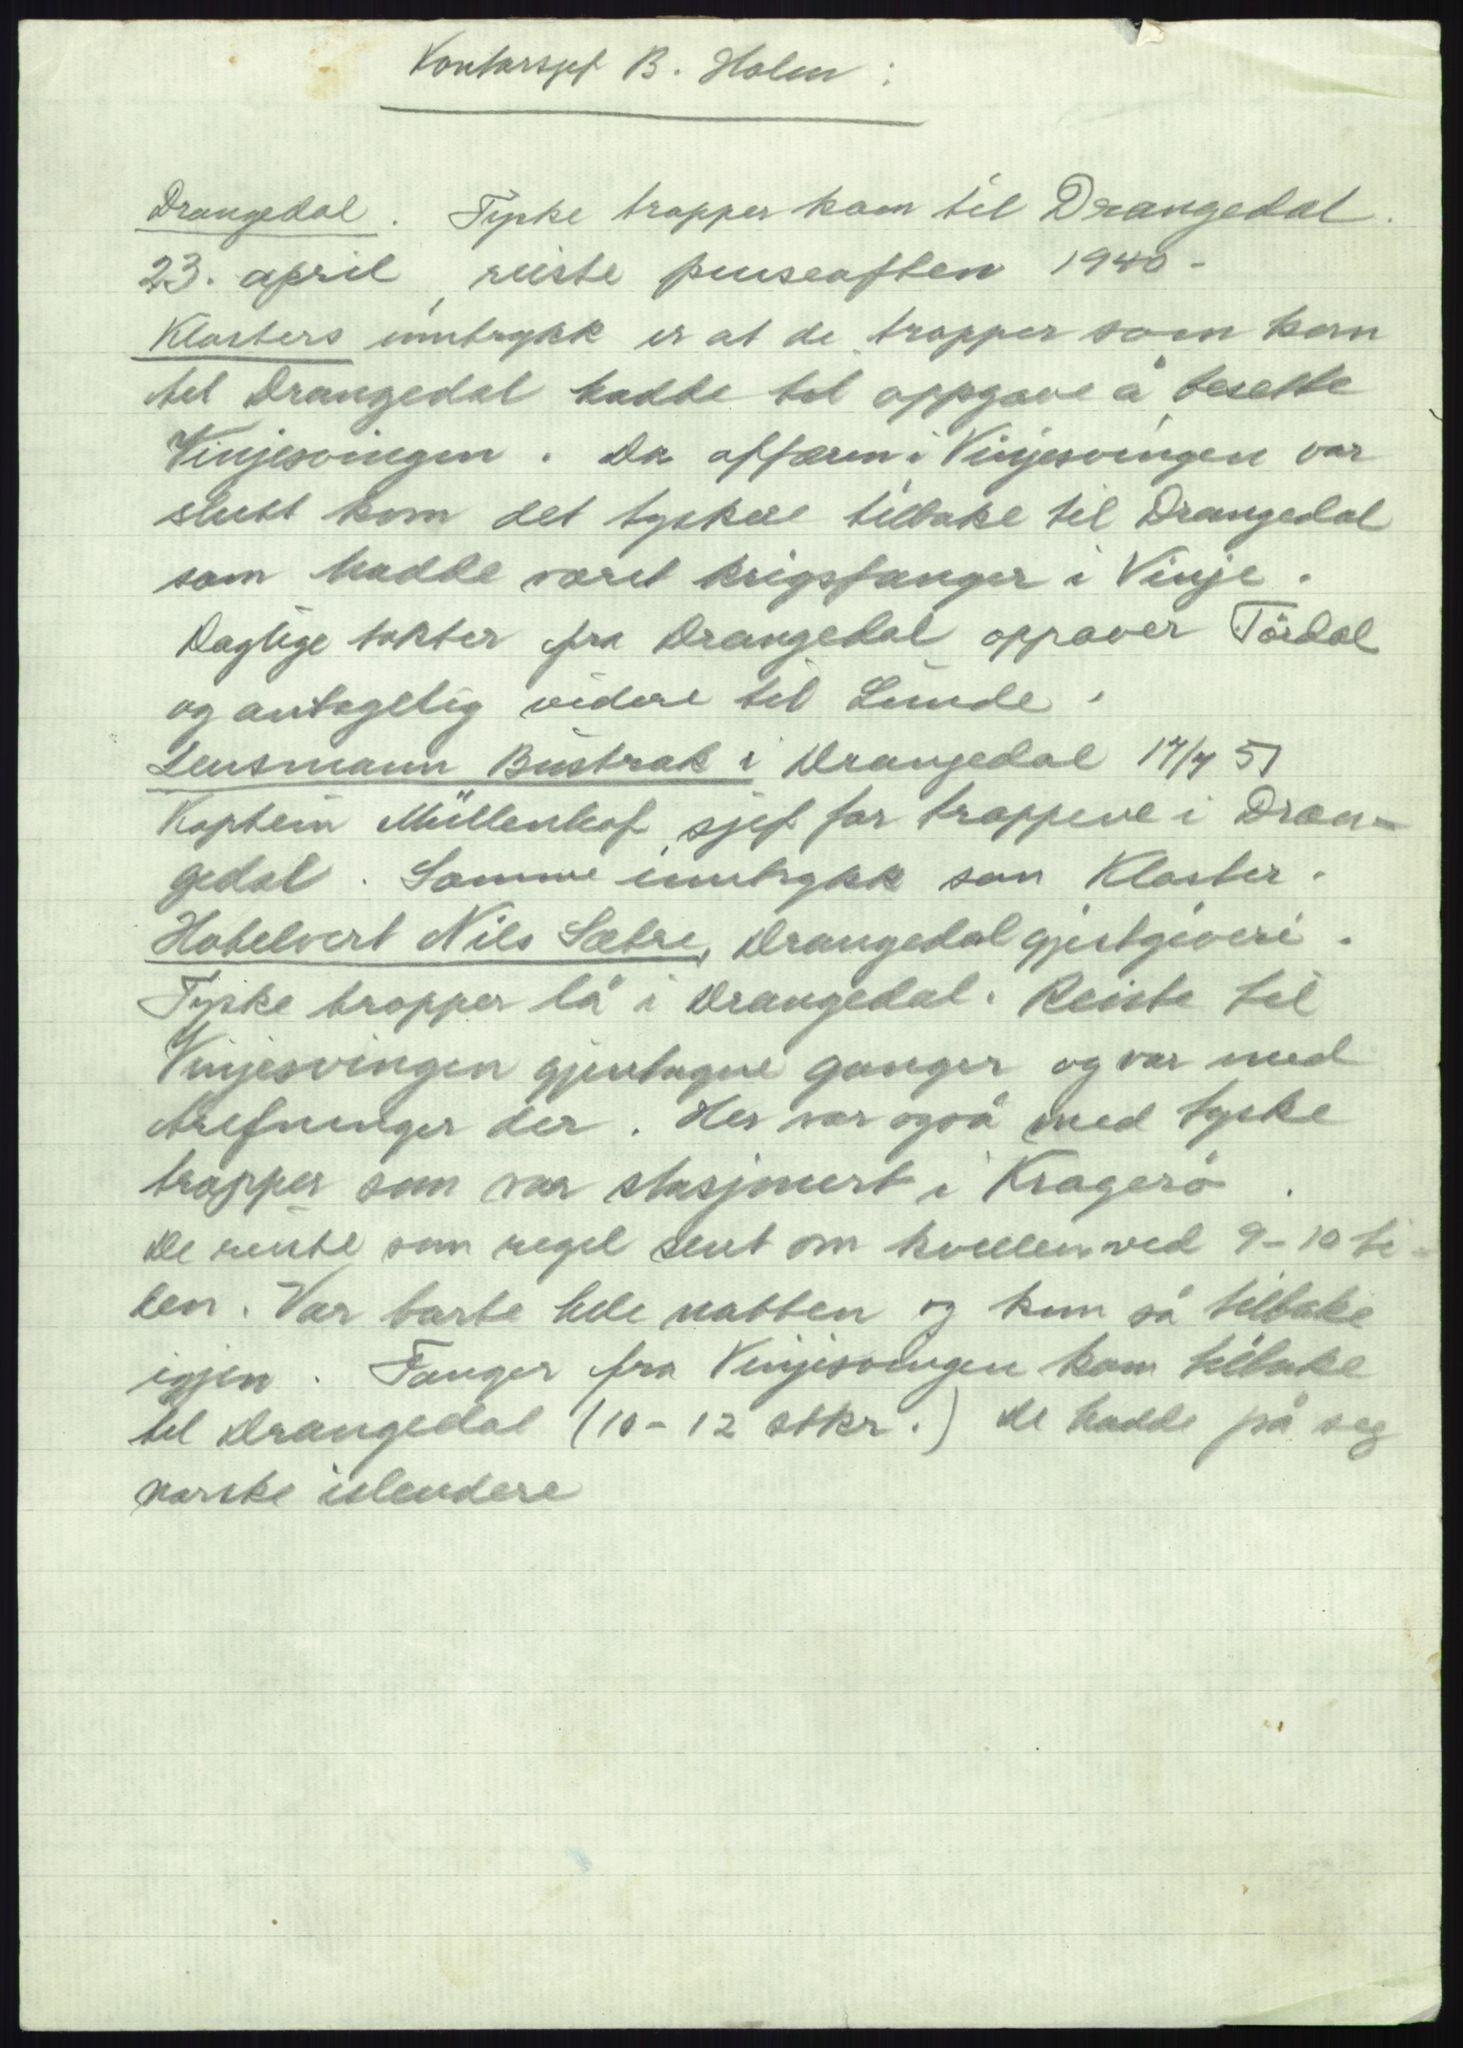 Kontorsjef B. Holm :
Drangedal. Tyske tropper kom til Drangedal.
23. april, reiste pinseaften 1940-
Klosters inntrykk er at de tropper som kom
til Drangedal hadde til oppgave å besette
Vinjesvingen. Da affæren i Vinjesvingen var
slutt kom det tyskere tilbake til Drangedal
som hadde været krigsfanger i Vinje.
Daglige tokter fra Drangedal oppover Tördal
og antagelig videre til Lunde.
Lensmann Bustrak i Drangedal 17/7 51
Kaptein Müllenhof sjef for troppene i Dran-
gedal. Samme inntrykk som Kloster.
Hotelvert Nils Sætre, Drangedal gjestgiveri.
Tyske tropper lå i Drangedal. Reiste til
Vinjesvingen gjentagne ganger og var med
trefninger der. Her var også med tyske
tropper som var stasjonert i Kragerö.
De reiste som regel sent om kvellen ved 9-10 ti-
den. Var borte hele natten og kom så tilbake
igjen. Fanger fra Vinjesvingen kom tilbake
til Drangedal (10-12 stkr.) De hadde på seg
norske islendere